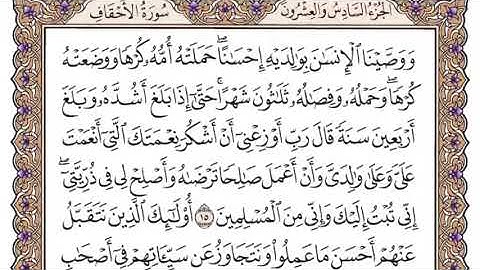 الجزء السادس والعشرون سورة الأحقاف
وَوَصَّيْنَا ٱلْإِنسَٰنَ بِوَٰلِدَيْهِ إِحْسَٰنًا ۖ حَمَلَتْهُ أُمُّهُۥ كُرْهًا وَوَضَعَتْهُ
كُرْهًا ۖ وَحَمْلُهُۥ وَفِصَٰلُهُۥ ثَلَٰثُونَ شَهْرًا ۚ حَتَّىٰٓ إِذَا بَلَغَ أَشُدَّهُۥ وَبَلَغَ
أَرْبَعِينَ سَنَةً قَالَ رَبِّ أَوْزِعْنِىٓ أَنْ أَشْكُرَ نِعْمَتَكَ ٱلَّتِىٓ أَنْعَمْتَ
عَلَىَّ وَعَلَىٰ وَٰلِدَىَّ وَأَنْ أَعْمَلَ صَٰلِحًا تَرْضَىٰهُ وَأَصْلِحْ لِى فِى ذُرِّيَّتِىٓ ۖ
إِنِّى تُبْتُ إِلَيْكَ وَإِنِّى مِنَ ٱلْمُسْلِمِينَ ١٥ أُو۟لَٰٓئِكَ ٱلَّذِينَ نَتَقَبَّلُ
عَنْهُمْ أَحْسَنَ مَا عَمِلُوا۟ وَنَتَجَاوَزُ عَن سَيِّـَٔاتِهِمْ فِىٓ أَصْحَٰبِ